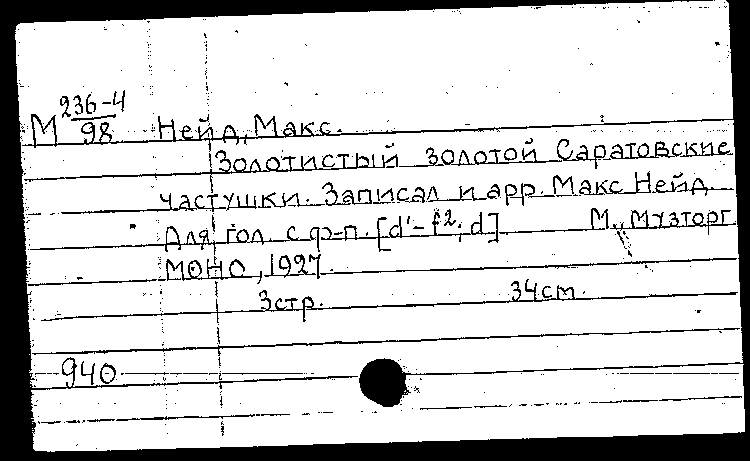 М 236-4/98 Нейд, Макс.
Золотистый золотой Саратовские
частушки. Записал и арр. Макс Нейд.
Для гол. с ф-п. [d'-f²; d] М., Музторг
МОНО, 1927.
3стр. 34см.
940